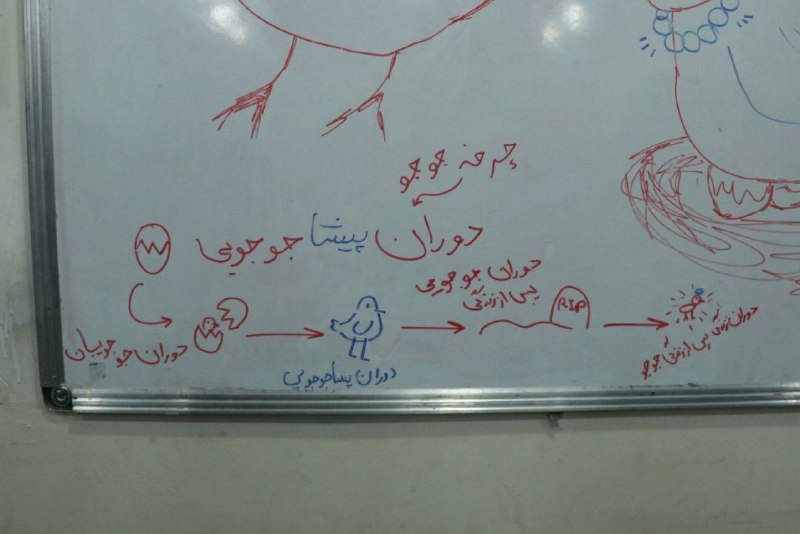 چرخه جوجو
دوران پیشا جوجویی
دوران جوجوییان
دوران پساجوجویی
دوران جوجویی
پس از زندگی
RIP
دوران زندگی پس از زندگی جوجو